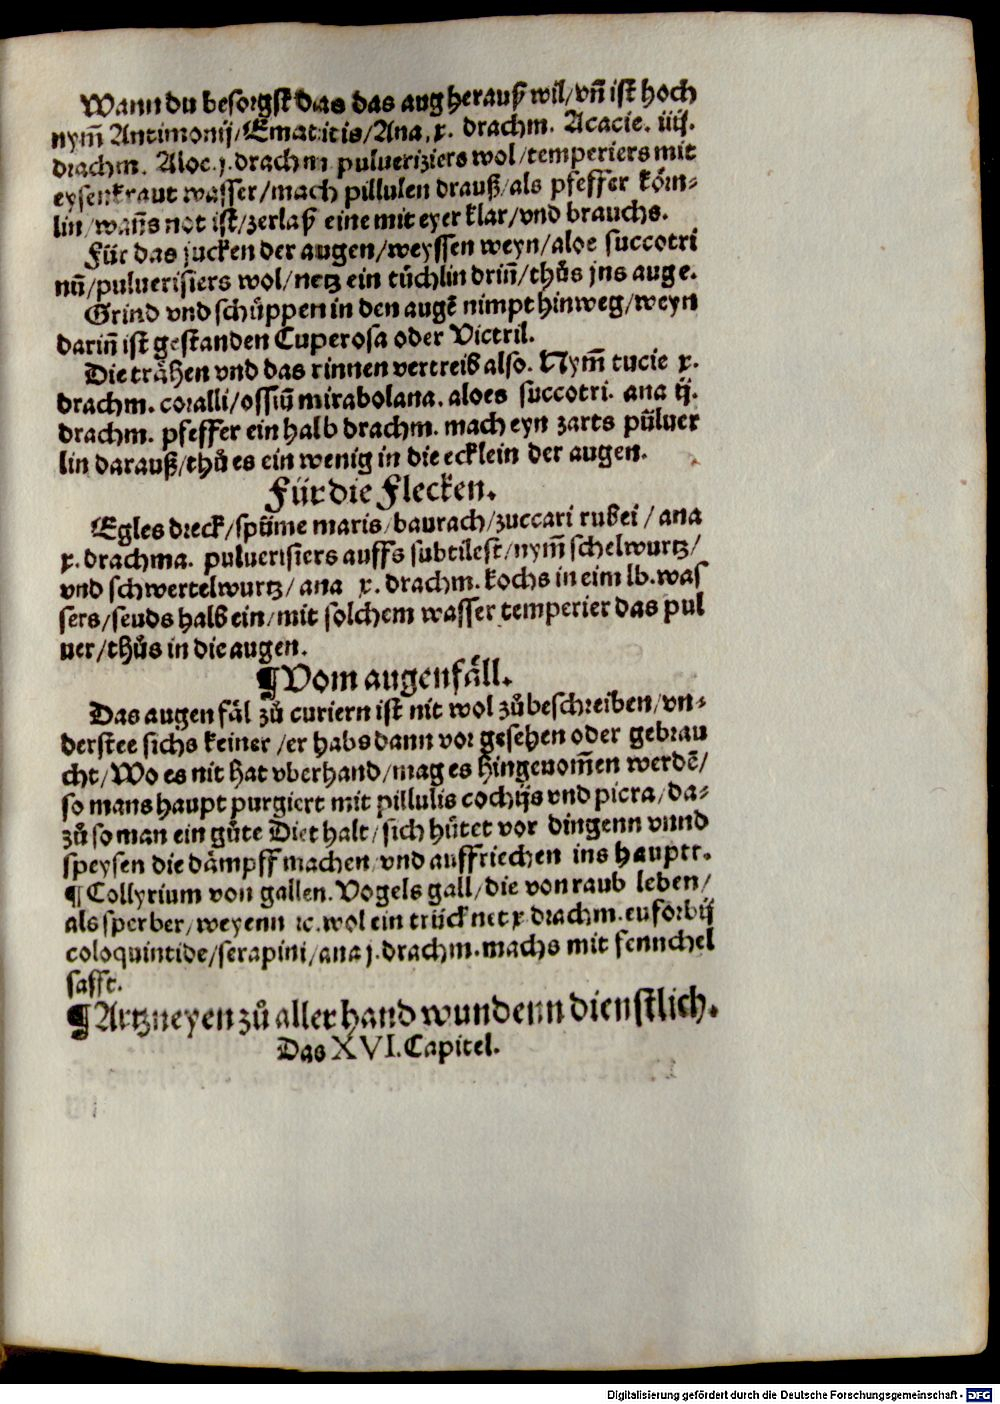 Wann du besorgst das das aug herauß wil/vn̄ ist hoch
nym̄ Antimonij/Ematitis/Ana. x. drachm. Acacie. iiij.
drachm. Aloe. j. drachm pulueriziers wol/temperiers mit
eysenkraut wasser/mach pillulen drauß/als pfeffer köm⸗
lin/wañs not ist/zerlaß eine mit eyer klar/vnd brauchs.
Für das jucken der augen/weyssen weyn/aloe succotri
nū/puluerisiers wol/netz ein tüchlin drin̄/thůs jns auge.
Grind vnd schüppen in den augē nimpt hinweg/weyn
darin̄ ist gestanden Cuperosa oder Victril.
Die trähen vnd das rinnen vertreib also. Nym̄ tucie x.
drachm. coralli/ossiū mirabolana. aloes succotri. ana ij.
drachm. pfeffer ein halb drachm. mach eyn zarts püluer
lin darauß/thů es ein wenig in die ecklein der augen.
Für die Flecken.
Egles dreck/spüme maris/baurach/zuccari rubei/ana
x. drachma. puluerisiers auffs subtilest/nym̄ schelwurtz/
vnd schwertelwurtz/ana x. drachm. kochs in eim lb. was
sers/seuds halb ein/mit solchem wasser temperier das pul
uer/thůs in die augen.
¶Vom augenfäll.
Das augen fäl zů curiern ist nit wol zů beschreiben/vn⸗
derstee sichs keiner/er habs dann vor gesehen oder gebrau
cht/Wo es nit hat vberhand/mag es hingenom̄en werdē/
so mans haupt purgiert mit pillulis cochijs vnd picra/da⸗
zů so man ein gůte Diet halt/sich hütet vor dingenn vnnd
speysen die dämpff machen/vnd auffriechen ins hauptt.
¶Collyrium von gallen. Vogels gall/die von raub leben/
als sperber/weyenn ꝛc. wol ein trücknet x drachm. euforbij
coloquintide/serapini/ana j. drachm. machs mit fennchel
safft.
¶Artzneyen zů allerhand wundenn dienstlich.
Das XVI. Capitel.
Digitalisierung gefördert durch die Deutsche Forschungsgemeinschaft - DFG